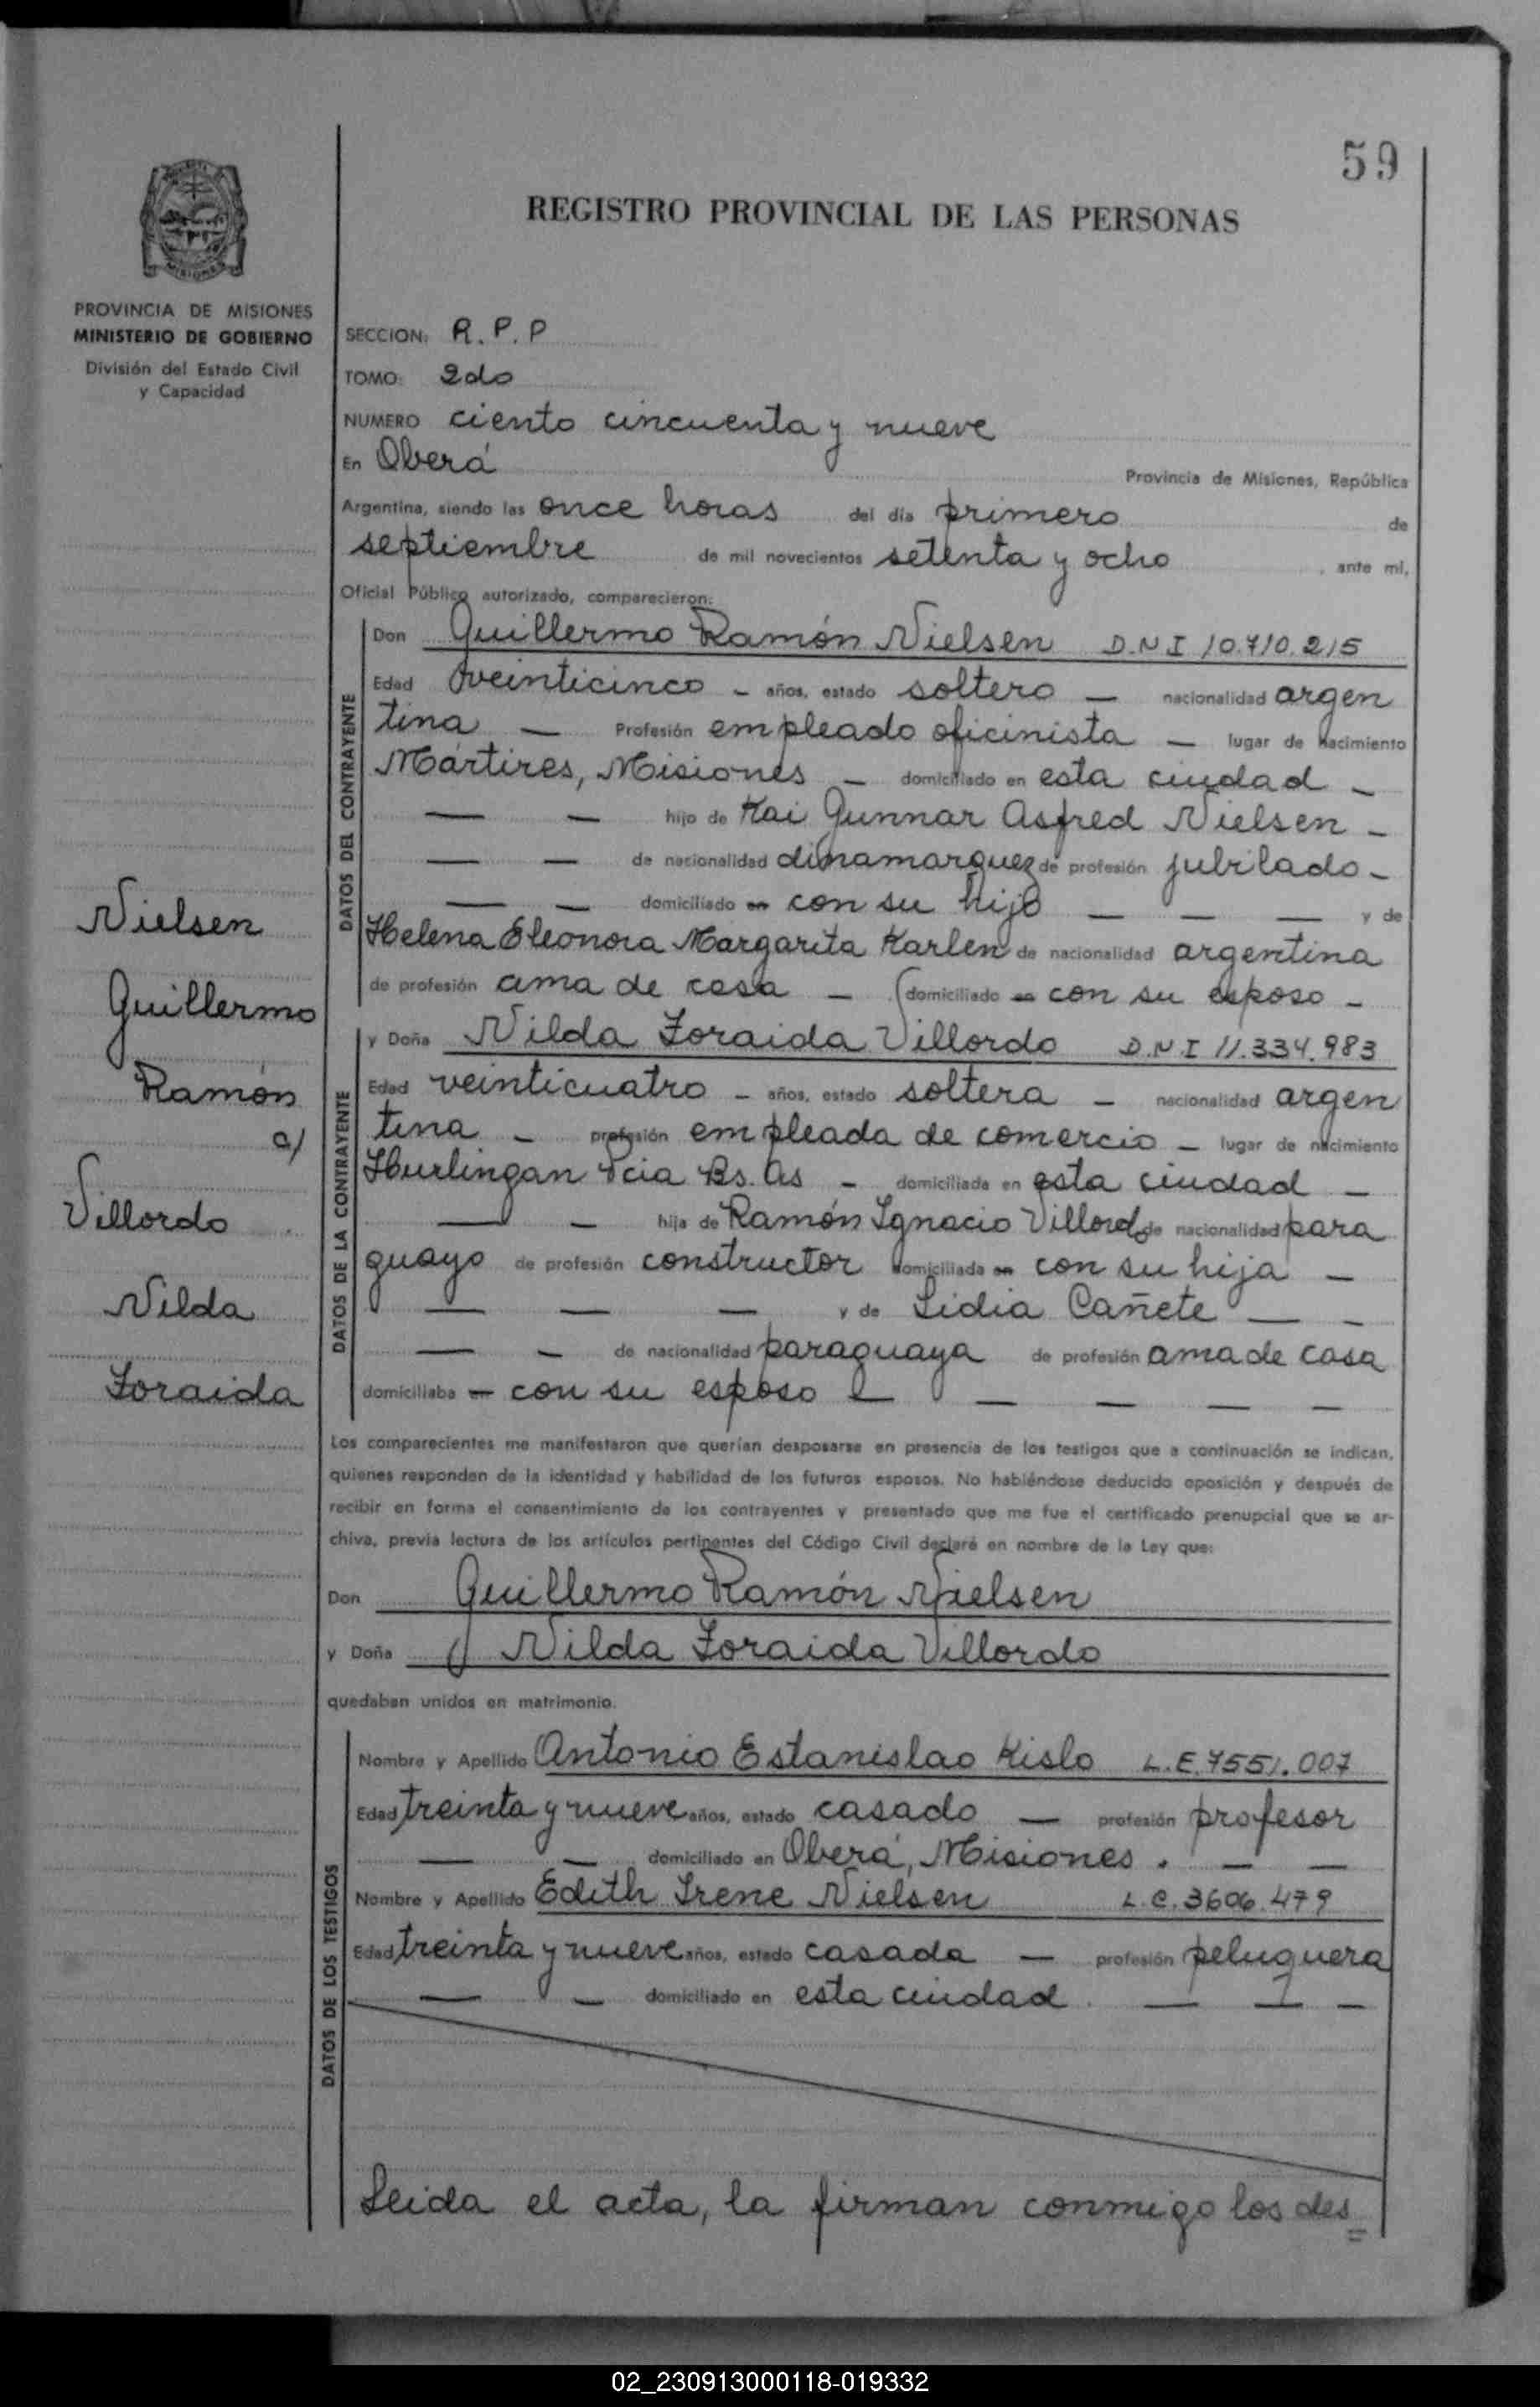 59
REGISTRO PROVINCIAL DE LAS PERSONAS
MISIONES
PROVINCIA DE MISIONES
MINISTERIO DE GOBIERNO
División del Estado Civil
y Capacidad
SECCION: R.P.P
TOMO: 2do
NUMERO ciento cincuenta y nueve
En Oberá Provincia de Misiones, República
Argentina, siendo las once horas del día primero de
septiembre de mil novecientos setenta y ocho, ante mí,
Oficial Público autorizado, comparecieron:
DATOS DEL CONTRAYENTE
Don Guillermo Ramón Nielsen D.N.I 10.710.215
Edad veinticinco - años, estado soltero — nacionalidad argen
tina — Profesión empleado oficinista — lugar de nacimiento
Mártires, Misiones — domiciliado en esta ciudad -
— — hijo de Kai Gunnar Asfred Nielsen -
— — de nacionalidad dinamarquez de profesión jubilado -
— — domiciliado en con su hijo — — — y de
Helena Eleonora Margarita Karlen de nacionalidad argentina
de profesión ama de casa — domiciliado en con su esposo -
DATOS DE LA CONTRAYENTE
y Doña Nilda Zoraida Villordo D.N.I 11.334.983
Edad veinticuatro - años, estado soltera — nacionalidad argen
tina - profesión empleada de comercio — lugar de nacimiento
Hurlingan Pcia Bs. As - domiciliada en esta ciudad —
— — hija de Ramón Ignacio Villordo de nacionalidad para
guayo de profesión constructor domiciliada en con su hija —
— — — y de Lidia Cañete — -
— - de nacionalidad paraguaya de profesión ama de casa
domiciliaba en con su esposo — — — — —
Los comparecientes me manifestaron que querían desposarse en presencia de los testigos que a continuación se indican,
quienes responden de la identidad y habilidad de los futuros esposos. No habiéndose deducido oposición y después de
recibir en forma el consentimiento de los contrayentes y presentado que me fue el certificado prenupcial que se ar-
chiva, previa lectura de los artículos pertinentes del Código Civil declaré en nombre de la Ley que:
Don Guillermo Ramón Nielsen
y Doña Nilda Zoraida Villordo
quedaban unidos en matrimonio.
DATOS DE LOS TESTIGOS
Nombre y Apellido Antonio Estanislao Kislo L.E. 7551.007
Edad treinta y nueve años, estado casado — profesión profesor
— — domiciliado en Oberá, Misiones. — —
Nombre y Apellido Edith Irene Nielsen L.C. 3606.479
Edad treinta y nueve años, estado casada — profesión peluquera
— — domiciliado en esta ciudad. — — -
Leida el acta, la firman conmigo los des=
Nielsen
Guillermo
Ramón
c/
Villordo
Nilda
Zoraida
02_230913000118-019332